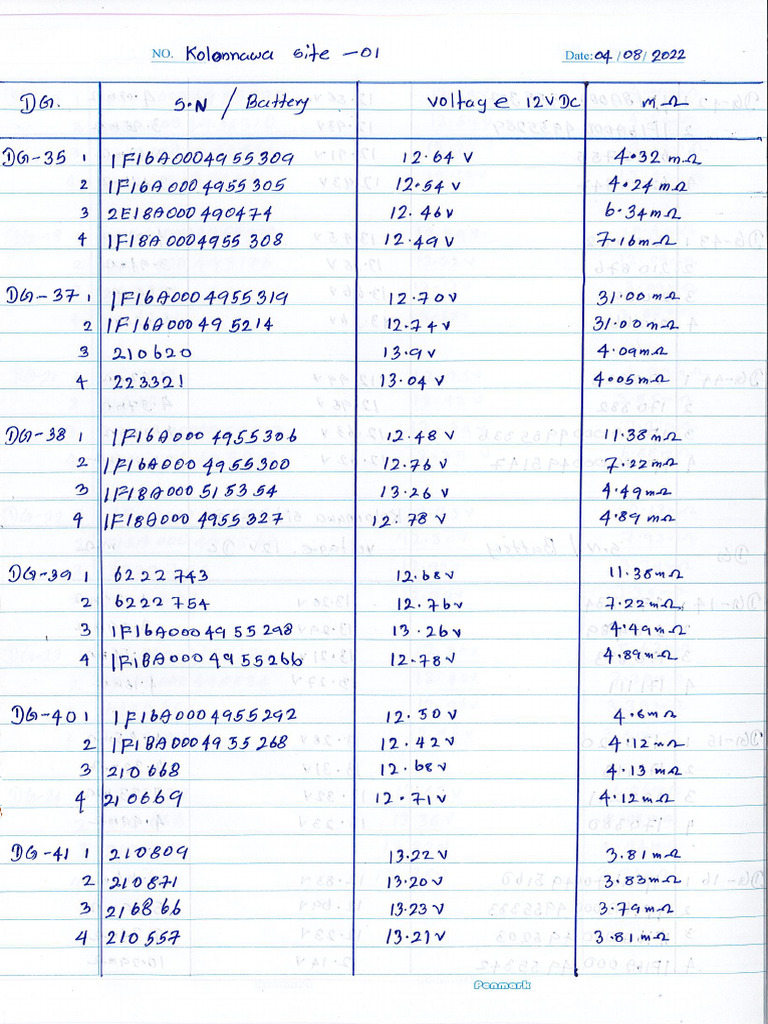 NO. Kolonnawa site - 01 Date: 04/08/2022
DG. S.N / Battery Voltage 12V DC mΩ
DG-35 1 1F16A0004955309 12.64 V 4.32 mΩ
2 1F16A0004955305 12.54 V 4.24 mΩ
3 2E18A000490474 12.46V 6.34mΩ
4 1F18A0004955308 12.49V 7.16mΩ
DG-37 1 1F16A0004955319 12.70V 31.00 mΩ
2 1F16A000495214 12.74V 31.00 mΩ
3 210620 13.9V 4.09mΩ
4 223321 13.04 V 4.05mΩ
DG-38 1 1F16A0004955306 12.48 V 11.38mΩ
2 1F16A0004955300 12.76 V 7.22mΩ
3 1F18A000515354 13.26 V 4.49mΩ
4 1F18A0004955327 12.78 V 4.89 mΩ
DG-39 1 6222743 12.68V 11.38mΩ
2 6222754 12.76V 7.22mΩ
3 1F16A0004955298 13.26V 4.49mΩ
4 1F18A0004955266 12.78 V 4.89mΩ
DG-40 1 1F16A0004955292 12.50 V 4.6mΩ
2 1F18A0004955268 12.42V 4.12mΩ
3 210668 12.68V 4.13 mΩ
4 210669 12.71V 4.12mΩ
DG-41 1 210809 13.22V 3.81mΩ
2 210871 13.20V 3.83mΩ
3 216866 13.23V 3.79mΩ
4 210557 13.21V 3.81mΩ
Penmark